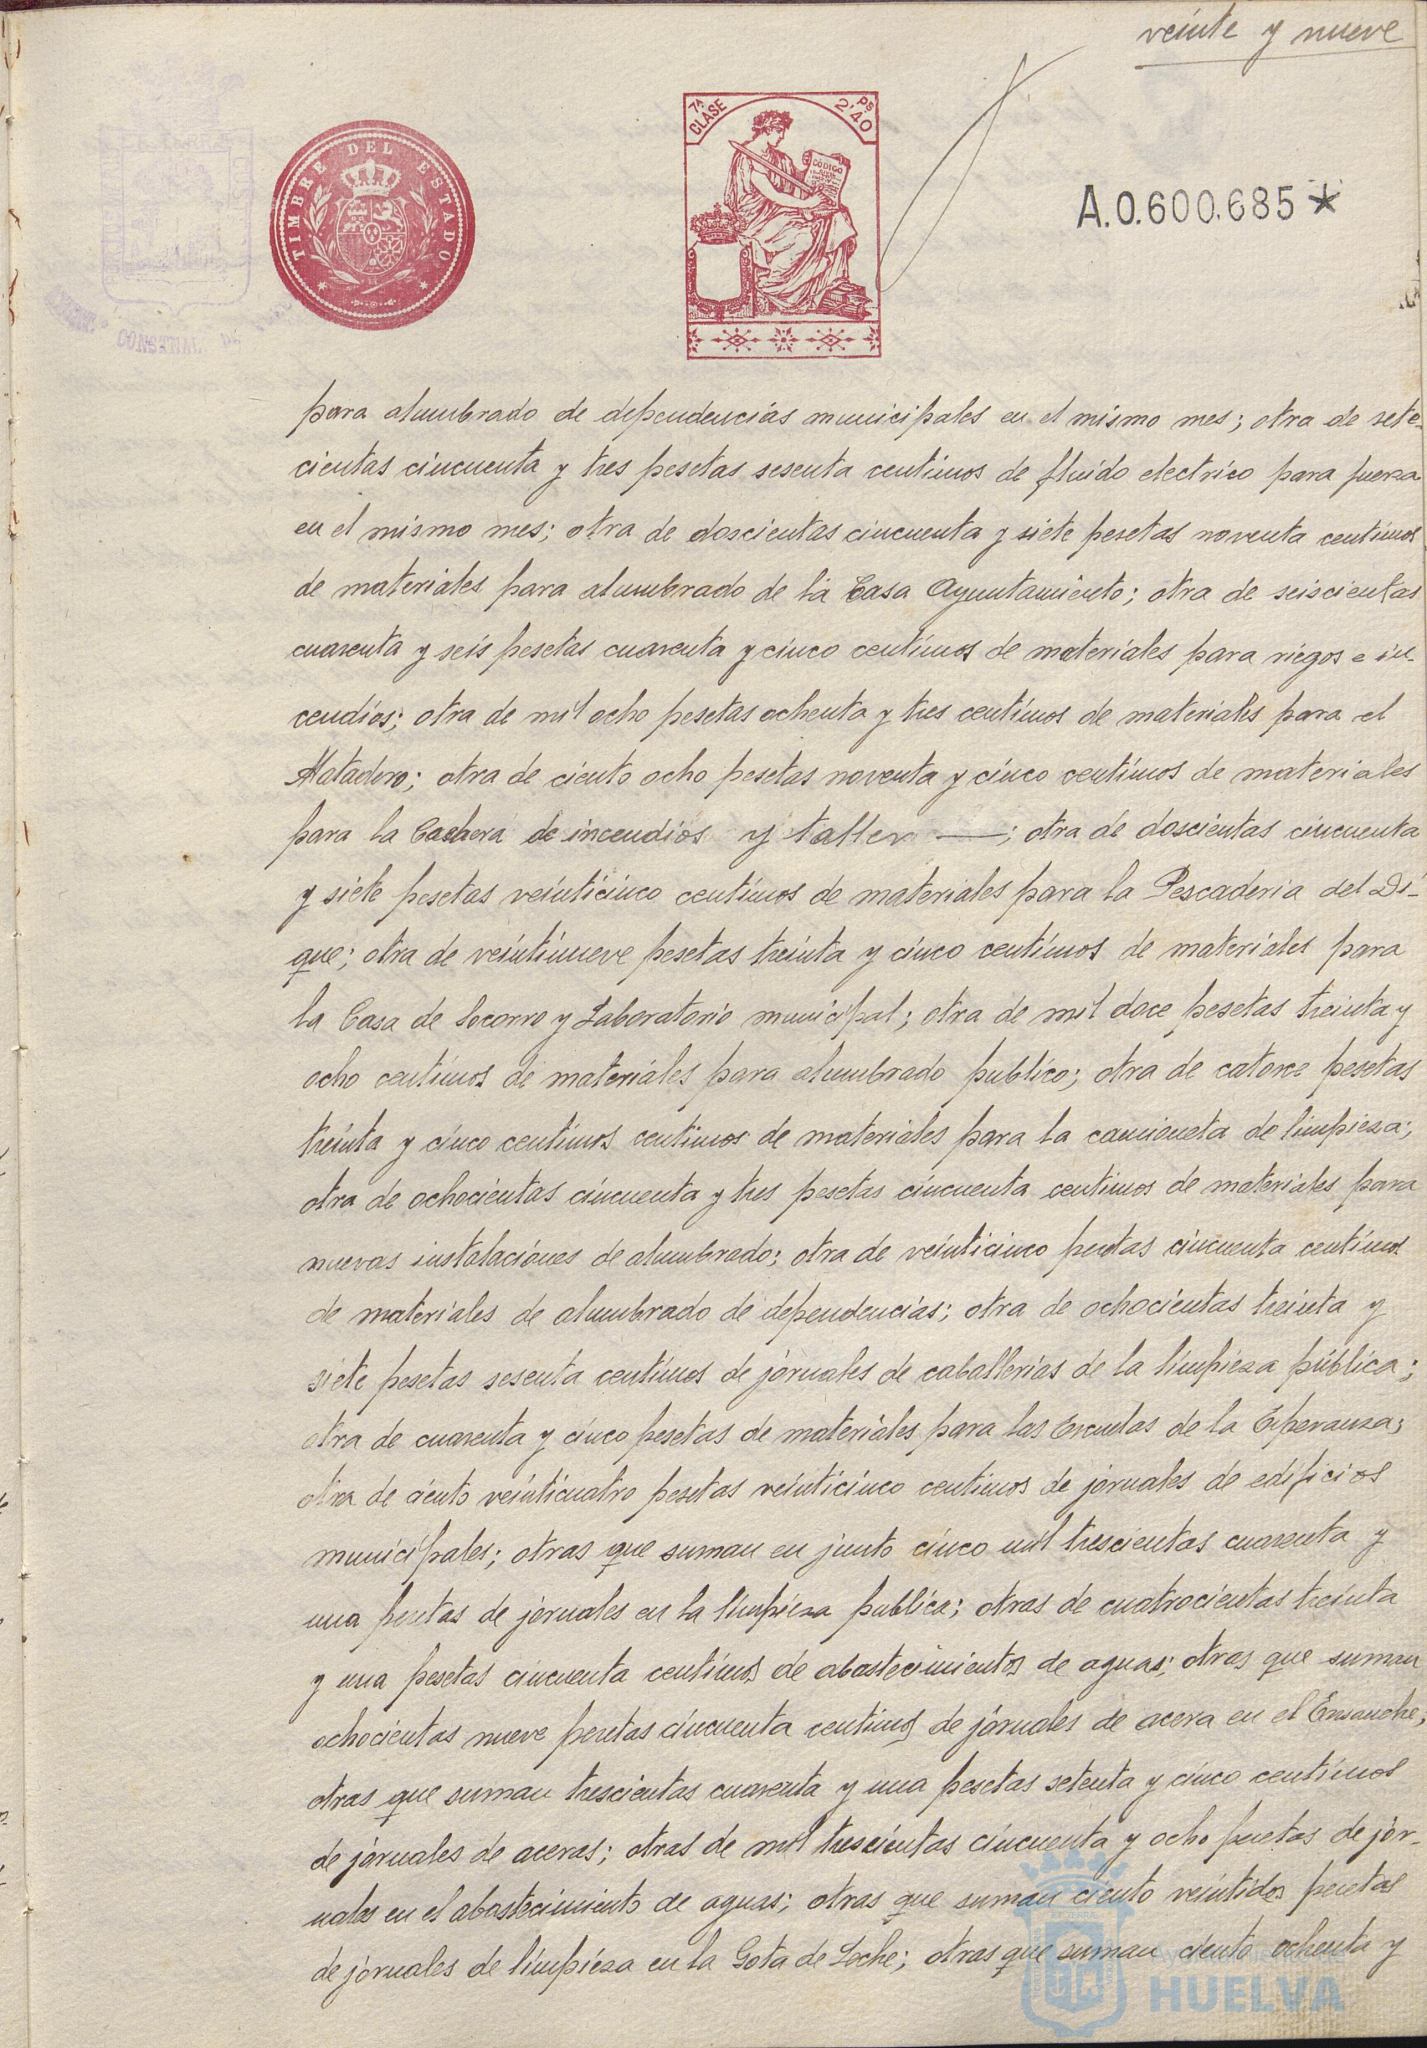 veinte y nueve
7ª CLASE
2'40 Ps
TIMBRE DEL ESTADO
CÓDIGO
A.0.600.685*
para alumbrado de dependencias municipales en el mismo mes; otra de sete-
cientas cincuenta y tres pesetas sesenta centimos de fluido electrico para fuerza
en el mismo mes; otra de doscientas cincuenta y siete pesetas noventa centimos
de materiales para alumbrado de la Casa Ayuntamiento; otra de seiscientas
cuarenta y seis pesetas cuarenta y cinco centimos de materiales para riegos e in-
cendios; otra de mil ocho pesetas ochenta y tres centimos de materiales para el
Matadero; otra de ciento ocho pesetas noventa y cinco centimos de materiales
para la Cochera de incendios y taller —; otra de doscientas cincuenta
y siete pesetas veinticinco centimos de materiales para la Pescaderia del Di-
que; otra de veintinueve pesetas treinta y cinco centimos de materiales para
la Casa de Socorro y Laboratorio municipal; otra de mil doce pesetas treinta y
ocho centimos de materiales para alumbrado publico; otra de catorce pesetas
treinta y cinco centimos centimos de materiales para la camioneta de limpieza;
otra de ochocientas cincuenta y tres pesetas cincuenta centimos de materiales para
nuevas instalaciones de alumbrado; otra de veinticinco pesetas cincuenta centimos
de materiales de alumbrado de dependencias; otra de ochocientas treinta y
siete pesetas sesenta centimos de jornales de caballerias de la limpieza pública;
otra de cuarenta y cinco pesetas de materiales para las Escuelas de la Esperanza;
otra de ciento veinticuatro pesetas veinticinco centimos de jornales de edificios
municipales; otras que suman en junto cinco mil trescientas cuarenta y
una pesetas de jornales en la limpieza publica; otras de cuatrocientas treinta
y una pesetas cincuenta centimos de abastecimientos de aguas; otras que suman
ochocientas nueve pesetas cincuenta centimos de jornales de acera en el Ensanche;
otras que suman trescientas cuarenta y una pesetas setenta y cinco centimos
de jornales de aceras; otras de mil trescientas cincuenta y ocho pesetas de jor-
nales en el abastecimiento de aguas; otras que suman ciento veintidos pesetas
de jornales de limpieza en la Gota de Leche; otras que suman ciento ochenta y
Ayuntamiento de
HUELVA